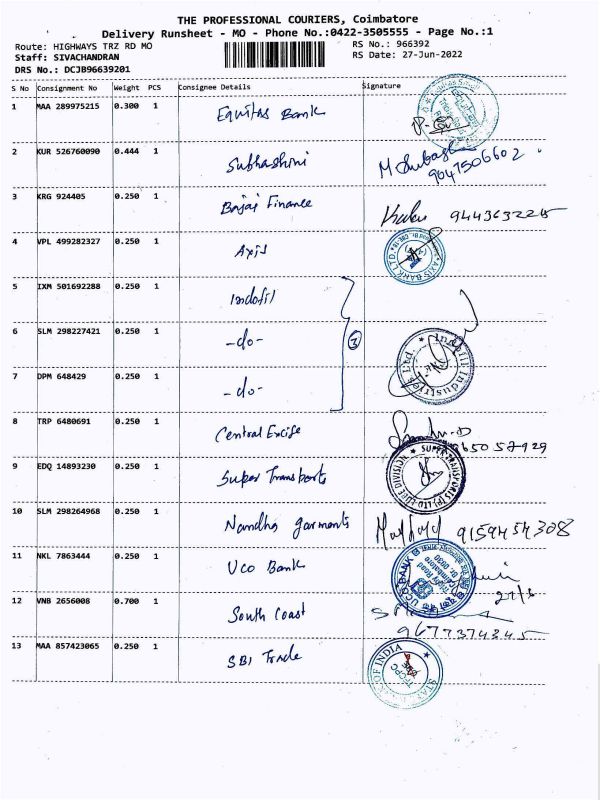 THE PROFESSIONAL COURIERS, Coimbatore
Delivery Runsheet - MO - Phone No.:0422-3505555 - Page No.:1
Route: HIGHWAYS TRZ RD MO RS No.: 966392
Staff: SIVACHANDRAN RS Date: 27-Jun-2022
DRS No.: DCJB96639201
S No Consignment No Weight PCS Consignee Details Signature
1 MAA 289975215 0.300 1 Equitas Bank
2 KUR 526760090 0.444 1 Subhashini
9047506602
3 KRG 924405 0.250 1 Bajaj Finance
4 VPL 499282327 0.250 1 Axis
AXIS BANK LTD
5 IXM 501692288 0.250 1 Indofil
6 SLM 298227421 0.250 1 -do-
Indofil Industries Ltd.
7 DPM 648429 0.250 1 -do-
8 TRP 6480691 0.250 1 Central Excise
9 EDQ 14893230 0.250 1 Super Transports
SUPER TRANSPORTS (P) LTD LUBE DIVISION
10 SLM 298264968 0.250 1 Nandha garments
9159454308
11 NKL 7863444 0.250 1 UCO Bank
UCO BANK
12 VNB 2656008 0.700 1 South Coast
9677374345
13 MAA 857423065 0.250 1 SBI Trade
OF INDIA